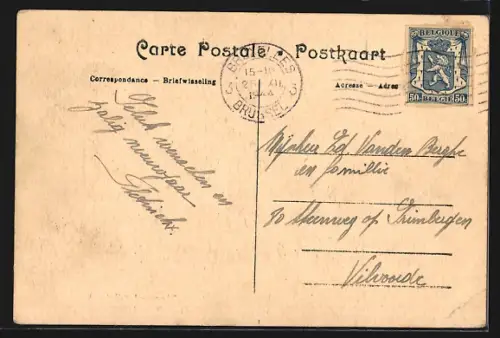 Carte Postale • Postkaart
Correspondance – Briefwisseling
Adresse – Adres
BRUXELLES
15-16
BRUSSEL
3 3
BELGIQUE
50 BELGIE 50
Geluk wenschen en
zalig nieuwjaar
Mijnheer Ed Vanden Berghe
en familie
80 Steenweg op Grimbergen
Vilvoorde